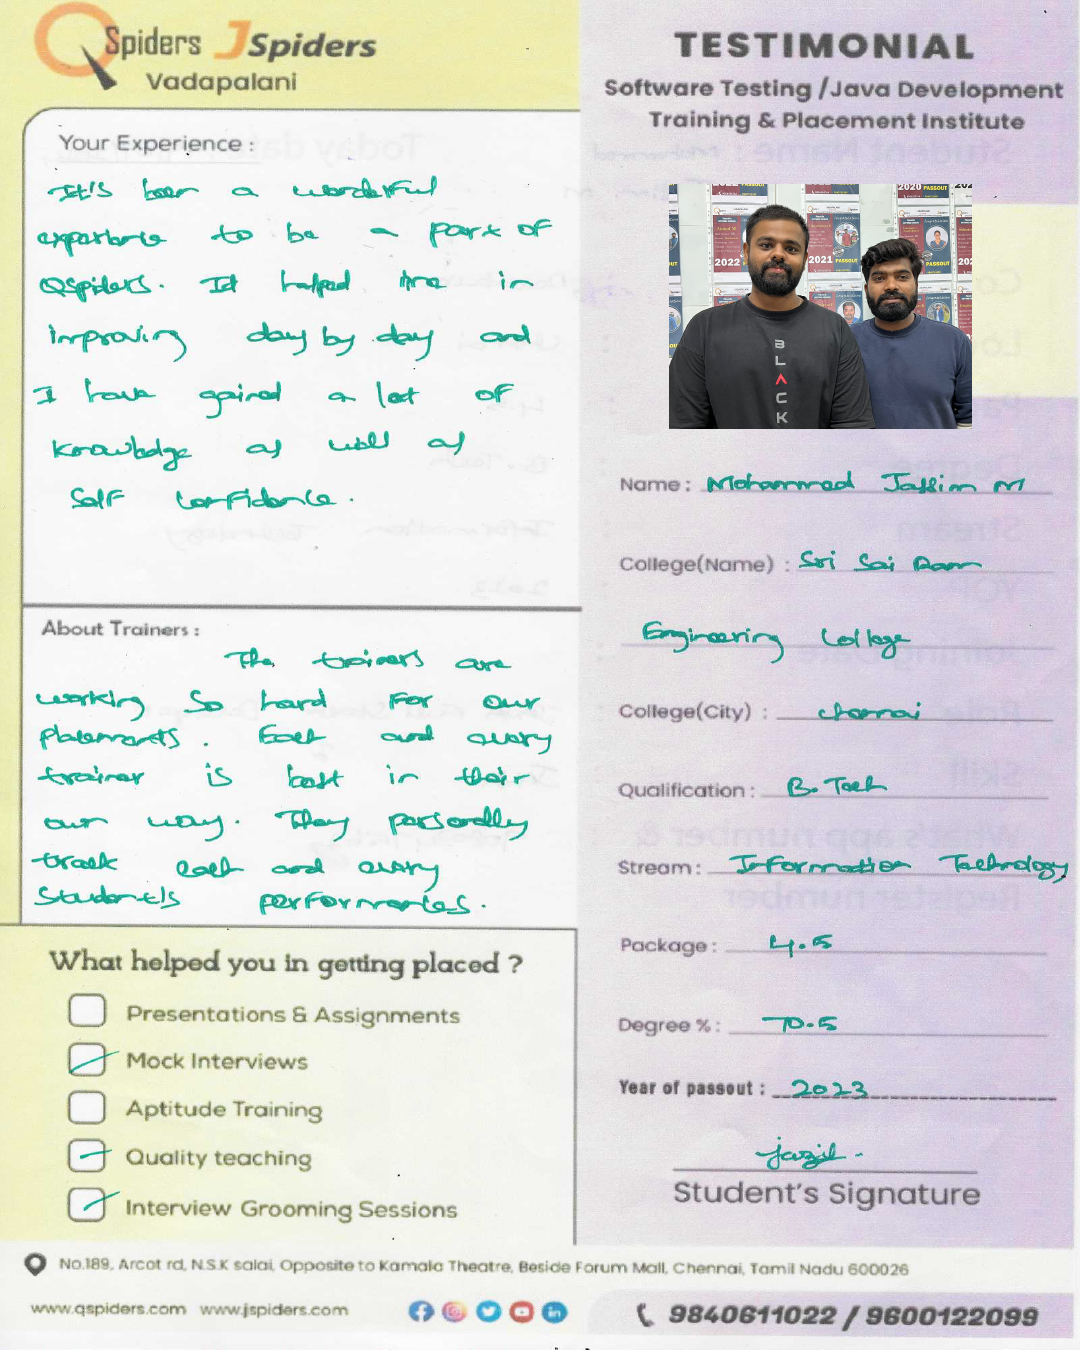 QSpiders JSpiders
Vadapalani
Your Experience :
It's been a wonderful
experience to be a part of
QSpiders. It helped me in
improving day by day and
I have gained a lot of
knowledge as well as
Self confidence.
About Trainers :
The trainers are
working so hard for our
placements. Each and every
trainer is best in their
own way. They personally
track each and every
Student's performances.
What helped you in getting placed ?
Presentations & Assignments
Mock Interviews
Aptitude Training
Quality teaching
Interview Grooming Sessions
TESTIMONIAL
Software Testing /Java Development
Training & Placement Institute
2022
2021
2020 PASSOUT
PASSOUT
BLACK
Name : Mohammed Jassim M
College(Name) : Sri Sai Ram
Engineering College
College(City) : chennai
Qualification : B.Tech
Stream : Information Technology
Package : 4.5
Degree % : 70.5
Year of passout : 2023
Student's Signature
No.189, Arcot rd, N.S.K salai, Opposite to Kamala Theatre, Beside Forum Mall, Chennai, Tamil Nadu 600026
www.qspiders.com www.jspiders.com
9840611022 / 9600122099